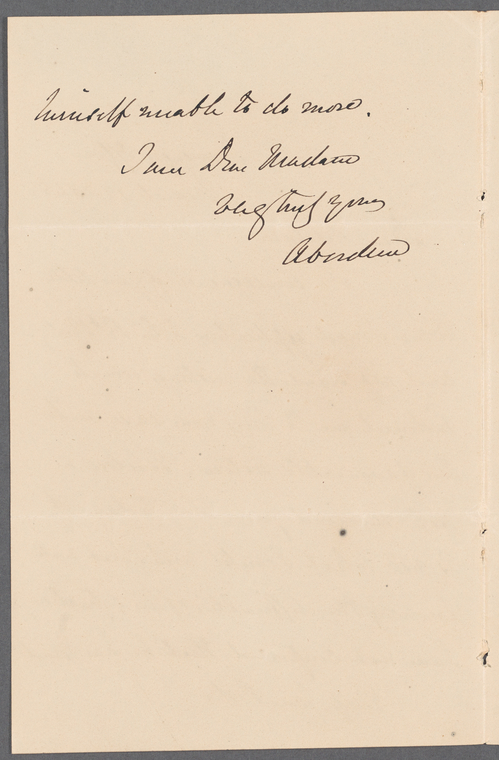 himself unable to do more.
I am Dear Madam
Very truly yours
Aberdeen